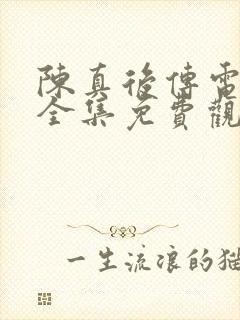 陳真後傳電
全集免費觀
一生流浪的猫